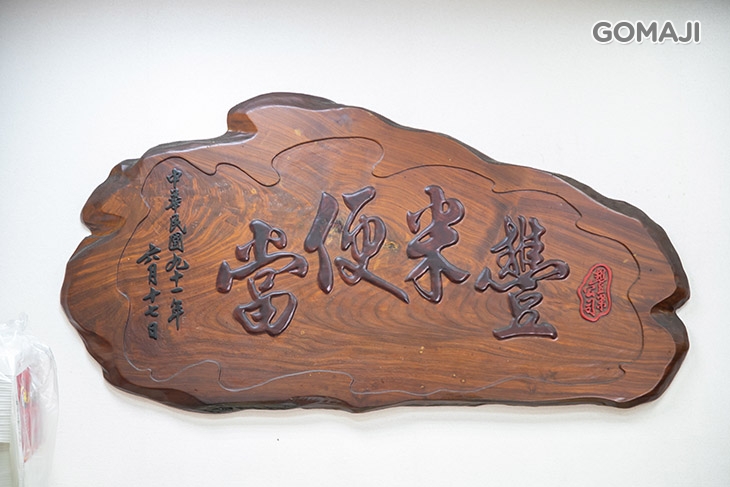 GOMAJI
豐米便當
中華民國九十一年
六月十七日